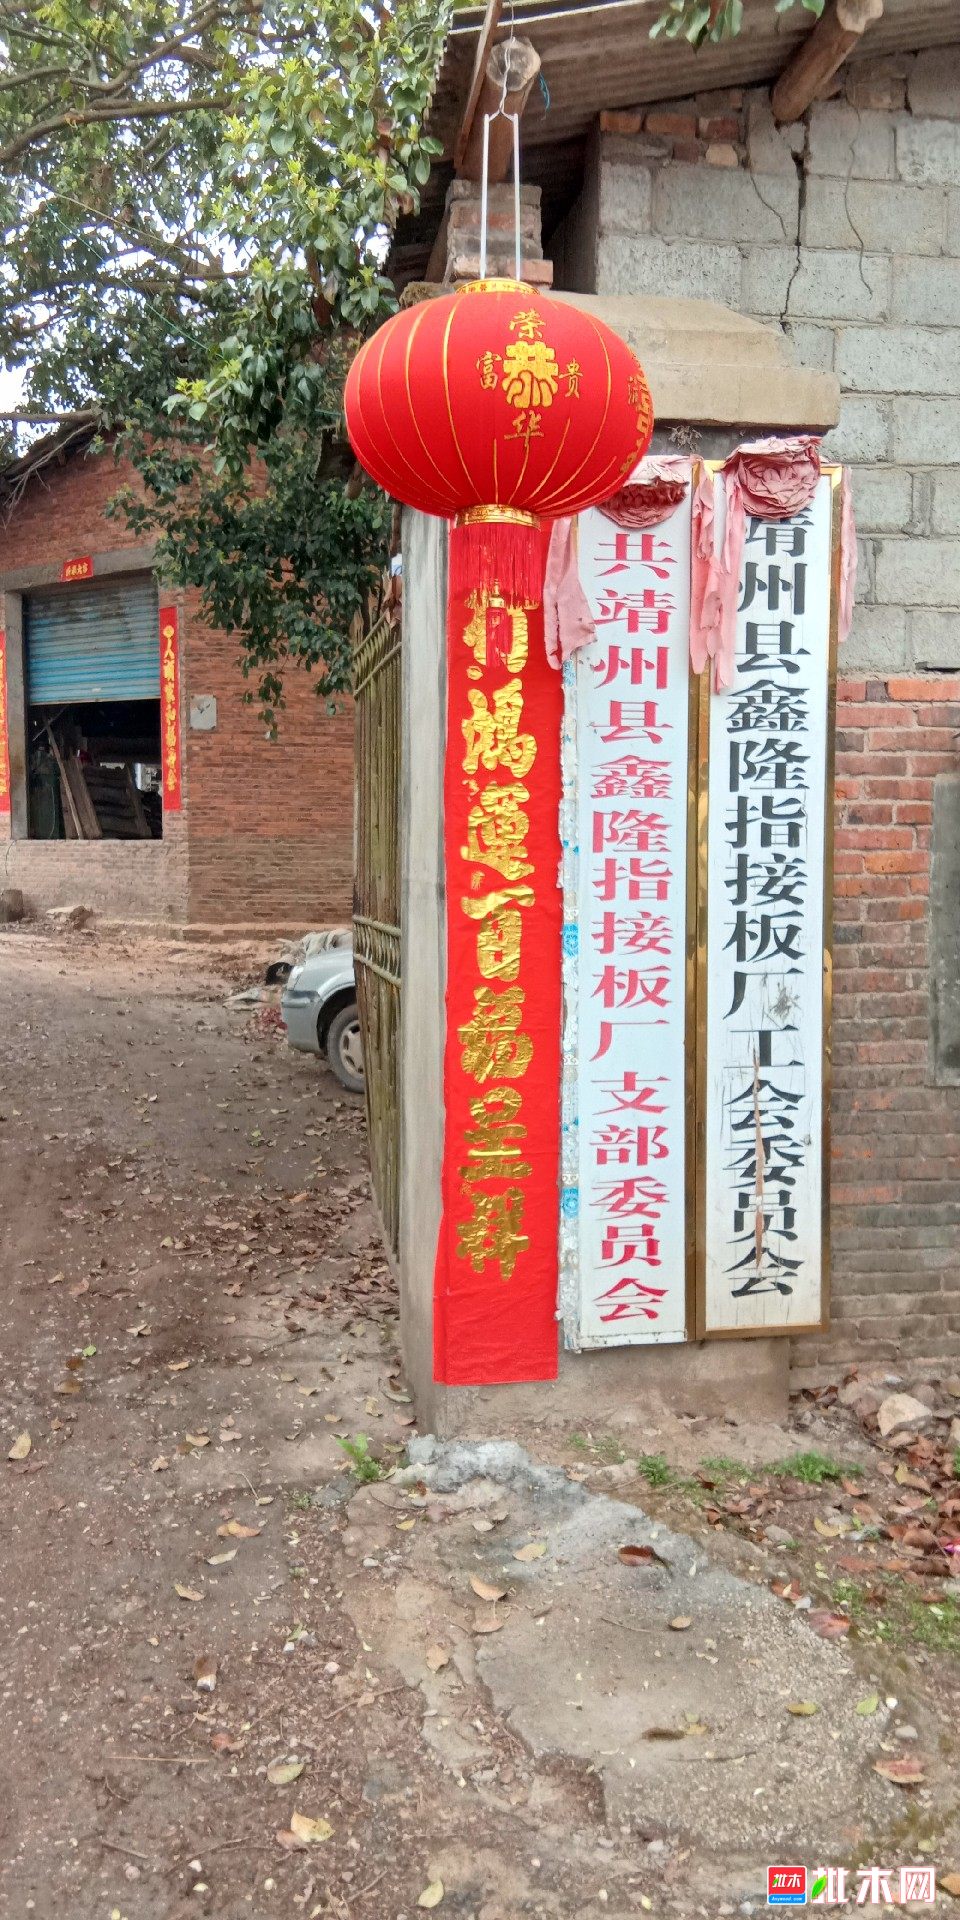 荣
富恭贵
华
行鸿运百福呈祥
共靖州县鑫隆指接板厂支部委员会
靖州县鑫隆指接板厂工会委员会
批木
批木网